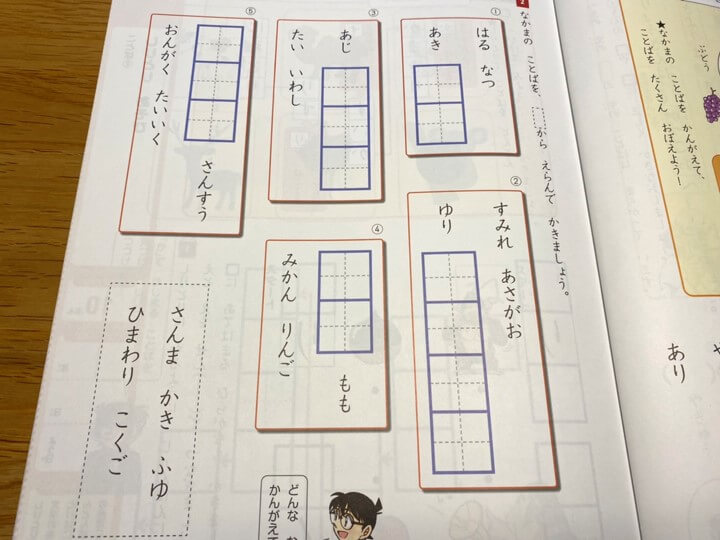 ぶどう
★なかまの ことばを かんがえて、
ことばを たくさん おぼえよう!
あり
2 なかまの ことばを、 から えらんで かきましょう。
①
はる なつ
あき
②
すみれ あさがお
ゆり
③
あじ
たい いわし
④
もも
みかん りんご
⑤
さんすう
おんがく たいいく
さんま かき ふゆ
ひまわり こくご
どんな
かんがえて